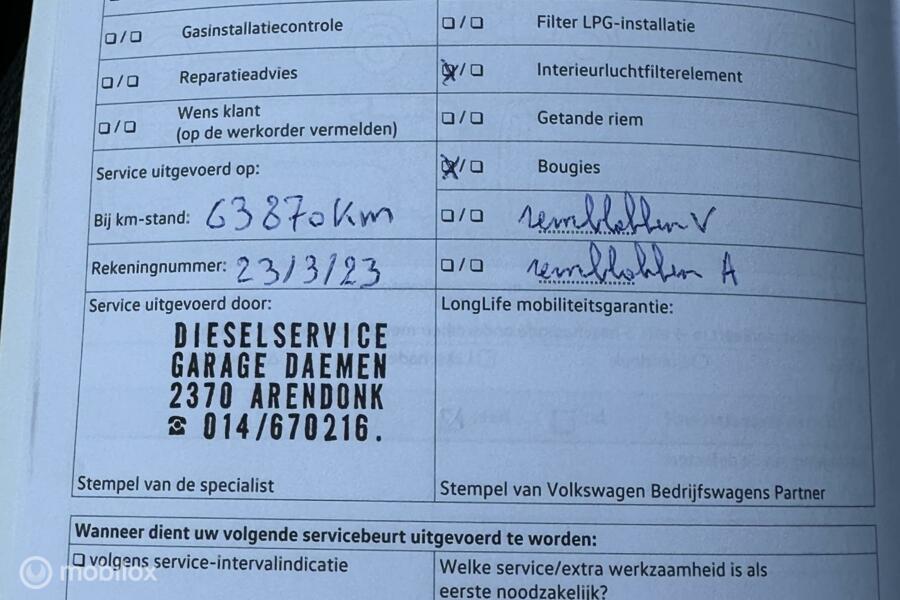 ❏/❏ Gasinstallatiecontrole
❏/❏ Filter LPG-installatie
❏/❏ Reparatieadvies
❏/❏ Interieurluchtfilterelement
❏/❏ Wens klant
(op de werkorder vermelden)
❏/❏ Getande riem
Service uitgevoerd op:
❏/❏ Bougies
Bij km-stand: 63870km
❏/❏ remblokken V
Rekeningnummer: 23/3/23
❏/❏ remblokken A
Service uitgevoerd door:
LongLife mobiliteitsgarantie:
DIESELSERVICE
GARAGE DAEMEN
2370 ARENDONK
☎ 014/670216.
Stempel van de specialist
Stempel van Volkswagen Bedrijfswagens Partner
Wanneer dient uw volgende servicebeurt uitgevoerd te worden:
❏ volgens service-intervalindicatie
Welke service/extra werkzaamheid is als
eerste noodzakelijk?
mobilox